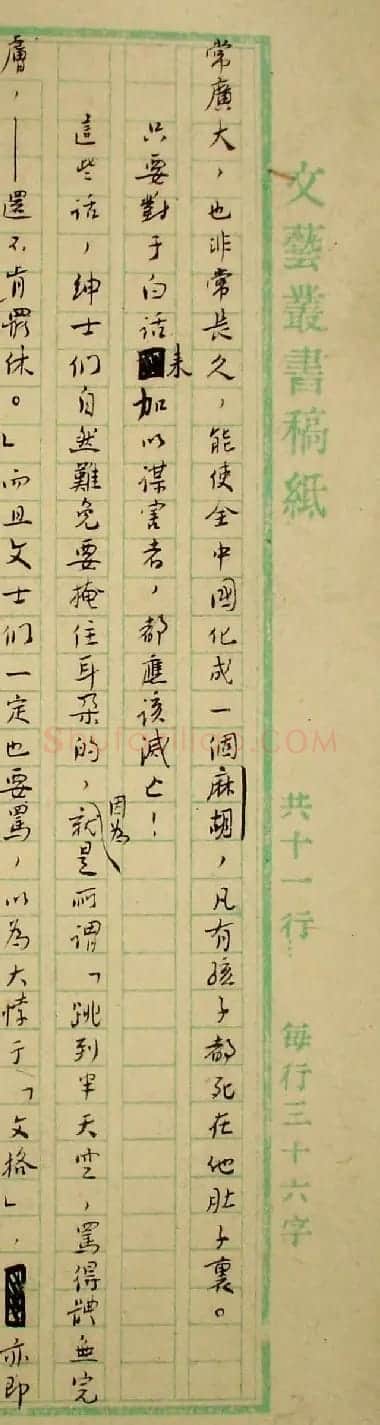 文藝叢書稿紙 共十一行 每行三十六字
常廣大，也非常長久，能使全中國化成一個麻胡，凡有孩子都死在他肚子裏。
只要對于白話来加以謀害者，都應該滅亡！
這些话，绅士们自然難免要掩住耳朵的，因為就是所謂「跳到半天空，罵得體無完
膚，——還不肯罷休。」而且文士们一定也要罵，以為大悖于「文格」，亦即